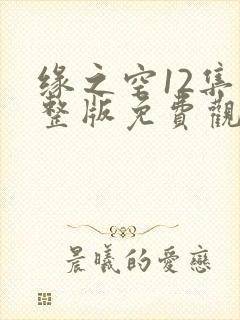 缘之空12集
整版免費觀
晨曦的愛戀